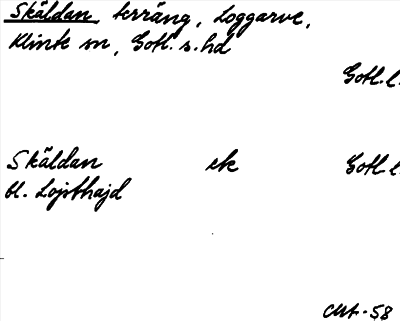 Skäldan, terräng, Loggarve,
Klinte sn, Gotl. s. hd
Gotl. l.
Skäldan ek Gotl. l.
bl. Lojsthajd
-58